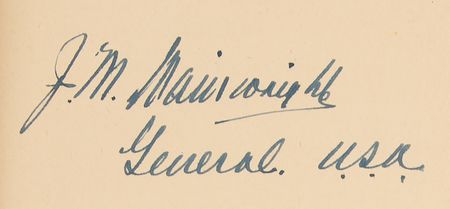 J. M. Wainwright
General. U.S.A.